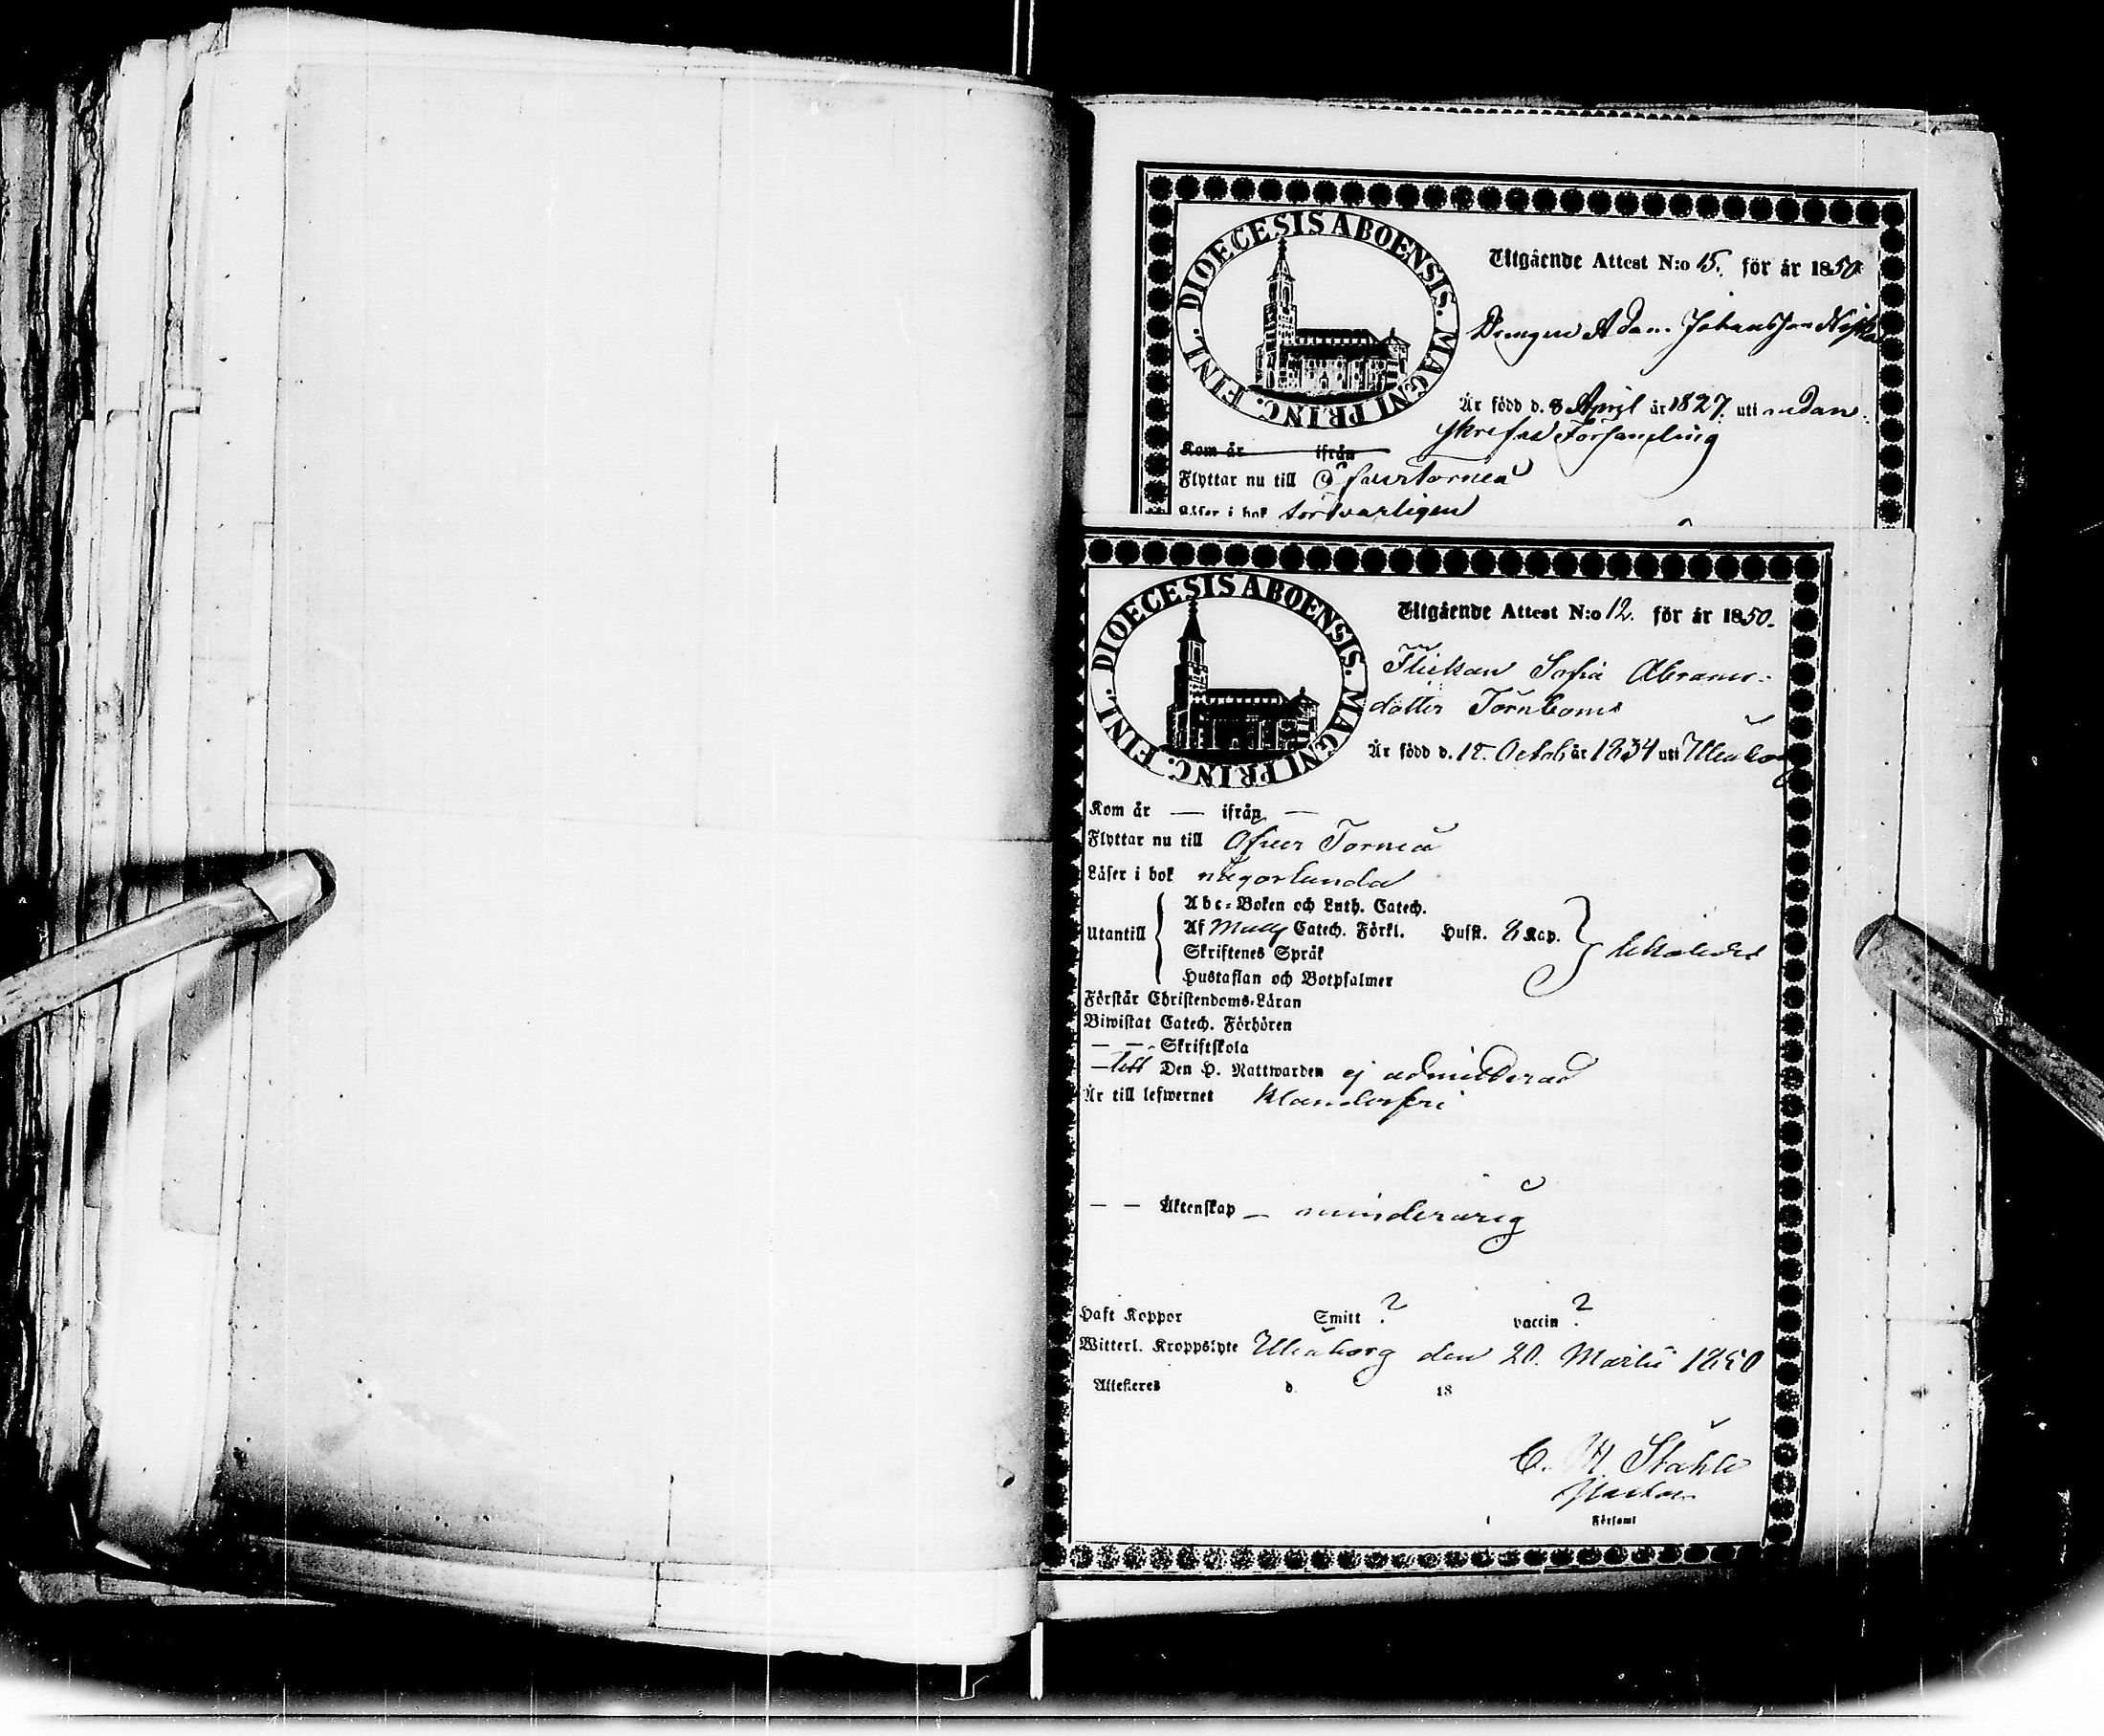 DIOECESIS ABOENSIS. MAGNI PRINC. FINL.
Utgående Attest N:o 15. för år 1850
Drengen Adam Johansson
Är född d. 8 April år 1827. uti nedan-
skrefne Församling
Kom år ifrån
Flyttar nu till Öfvertorneå
Läser i bok försvarligen
DIOECESIS ABOENSIS. MAGNI PRINC. FINL.
Utgående Attest N:o 12. för år 1850.
Flickan Sofia Abrams-
dotter Törnbom
Är född d. 15. Octob år 1834 uti Uleåborg
Kom år — ifrån —
Flyttar nu till Öfver Torneå
Läser i bok någorlunda
Utantill
Abc-Boken och Luth. Catech.
Af Catech. Förkl. Husst. 8 Kap.
Skriftenes Språk
Hustaflan och Botpsalmer
Förstår Christendoms-Läran
Biwistat Catech. Förhören
— — Skriftskola
— till Den H. Nattwarden ej admitterad
Är till lefwernet klanderfri
— — Äktenskap — minderårig
Haft Koppor Smitt ? vaccin ?
Witterl. Kroppslyte Uleåborg den 20. Martii 1850
Attesteres d. 18
C. M. Ståhle
i Församl